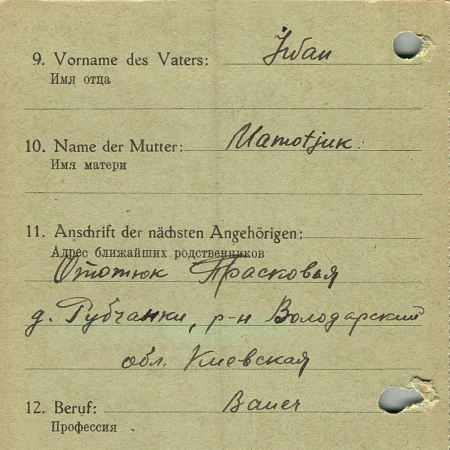 9. Vorname des Vaters: Iwan
Имя отца
10. Name der Mutter: Mamotjuk
Имя матери
11. Anschrift der nächsten Angehörigen:
Адрес ближайших родственников
Прасковья
д. Губчанки, р-н Володарский
обл. Киевская
12. Beruf: Bauer
Профессия